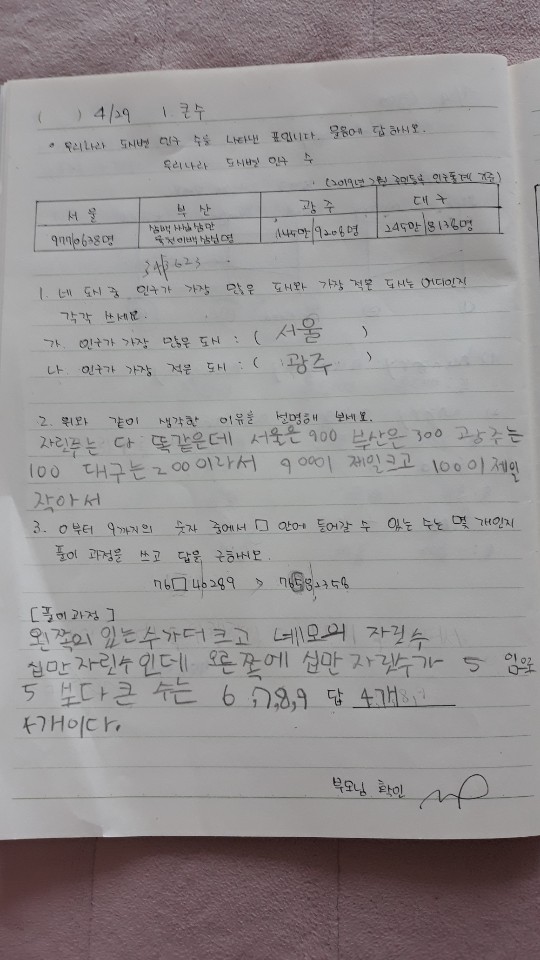 ( ) 4/29 1. 큰 수
• 우리나라 도시별 인구 수를 나타낸 표입니다. 물음에 답하시오.
우리나라 도시별 인구 수
(2019년 2월 주민등록 인구통계 기준)
서울 부산 광주 대구
977|0638명 삼백사십삼만 육천이백삼십명 145만|9208명 245만|8138명
343|623
1. 네 도시 중 인구가 가장 많은 도시와 가장 적은 도시는 어디인지
각각 쓰세요.
가. 인구가 가장 많은 도시 : ( 서울 )
나. 인구가 가장 적은 도시 : ( 광주 )
2. 위와 같이 생각한 이유를 설명해 보세요.
자린수는 다 똑같은데 서울은 900 부산은 300 광주는
100 대구는 200이라서 900이 제일크고 100이 제일
작아서
3. 0부터 9까지의 숫자 중에서 □ 안에 들어갈 수 있는 수는 몇 개인지
풀이 과정을 쓰고 답을 구하시오.
76□40289 > 76582358
[풀이과정]
왼쪽의 있는수가더 크고 네모의 자린수
십만자릿수인데 오른쪽에 십만 자릿수가 5 임으로
5 보다 큰 수는 6,7,8,9 답 4개
4개이다.
부모님 확인